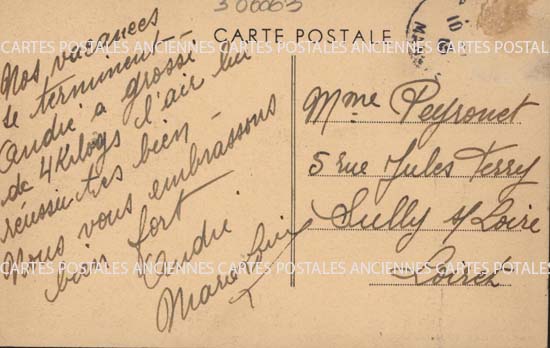 300063
CARTE POSTALE
CARTES POSTALES ANCIENNES CARTES POSTALES ANCIENNES CARTES POSTALES
Nos vacances
se terminent
André a grossi
de 4 Kilogs l'air lui
réussit très bien -
Nous vous embrassons
bien fort
André
Mme Peyronet
5 rue Jules Ferry
Sully s/Loire
Loiret
CARTES POSTALES ANCIENNES CARTES POSTALES ANCIENNES CARTES POSTALES